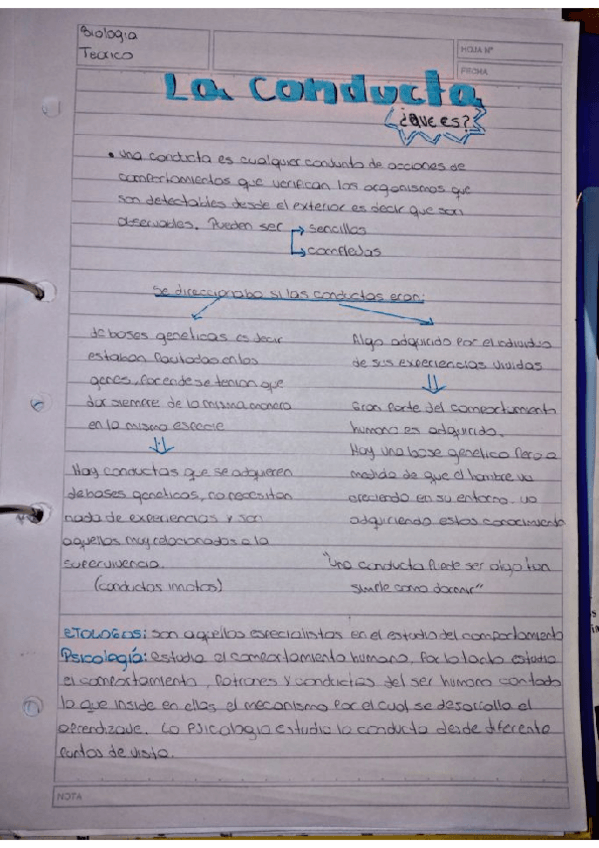 Biologia
Teorico
HOJA Nº
FECHA
La conducta
¿Que es?
• una conducta es cualquier conjunto de acciones de
comportamientos que verifican los organismos que
son detectables desde el exterior es decir que son
observados. Pueden ser → sencillas
→ complejas
Se direccionaba si las conductas eran:
de bases geneticas es decir
estaban pautadas en los
genes, por ende se tenian que
dar siempre de la misma manera
en la misma especie
Hay conductas que se adquieren
de bases geneticas, no necesitan
nada de experiencias y son
aquellas muy relacionados a la
supervivencia.
(conductas innatas)
Algo adquirido por el individuo
de sus experiencias vividas
Gran parte del comportamiento
humano es adquirido.
Hay una base genetica pero a
medida de que el hombre va
creciendo en su entorno va
adquiriendo estos conocimiento
"Una conducta puede ser algo tan
simple como dormir"
ETOLOGOS: son aquellos especialistas en el estudio del comportamiento
Psicología: estudia al comportamiento humano, por lo tanto estudia
el comportamiento, patrones y conductas del ser humano con todo
lo que inside en ellas, el mecanismo por el cual se desarrolla el
aprendizaje. La psicologia estudia la conducta desde diferente
puntos de vista.
NOTA